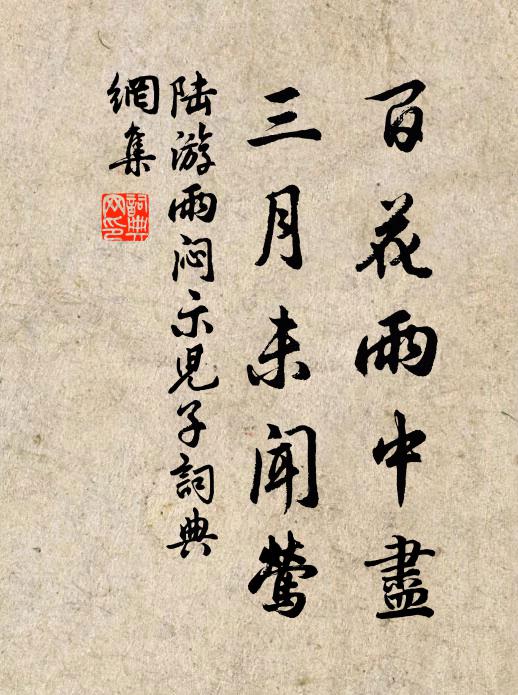 百花雨中盡
三月未聞鶯
陆游雨闷示兒子詞典
網集
詞典
网印